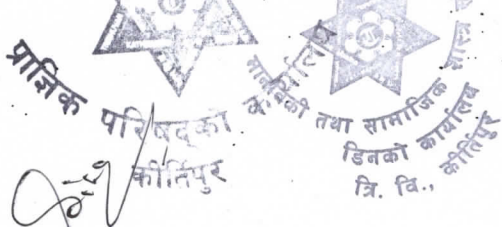 प्राज्ञिक परिषद्को कार्यालय
कीर्तिपुर
मानविकी तथा सामाजिक शास्त्र
डिनको कार्यालय
त्रि. वि., कीर्तिपुर